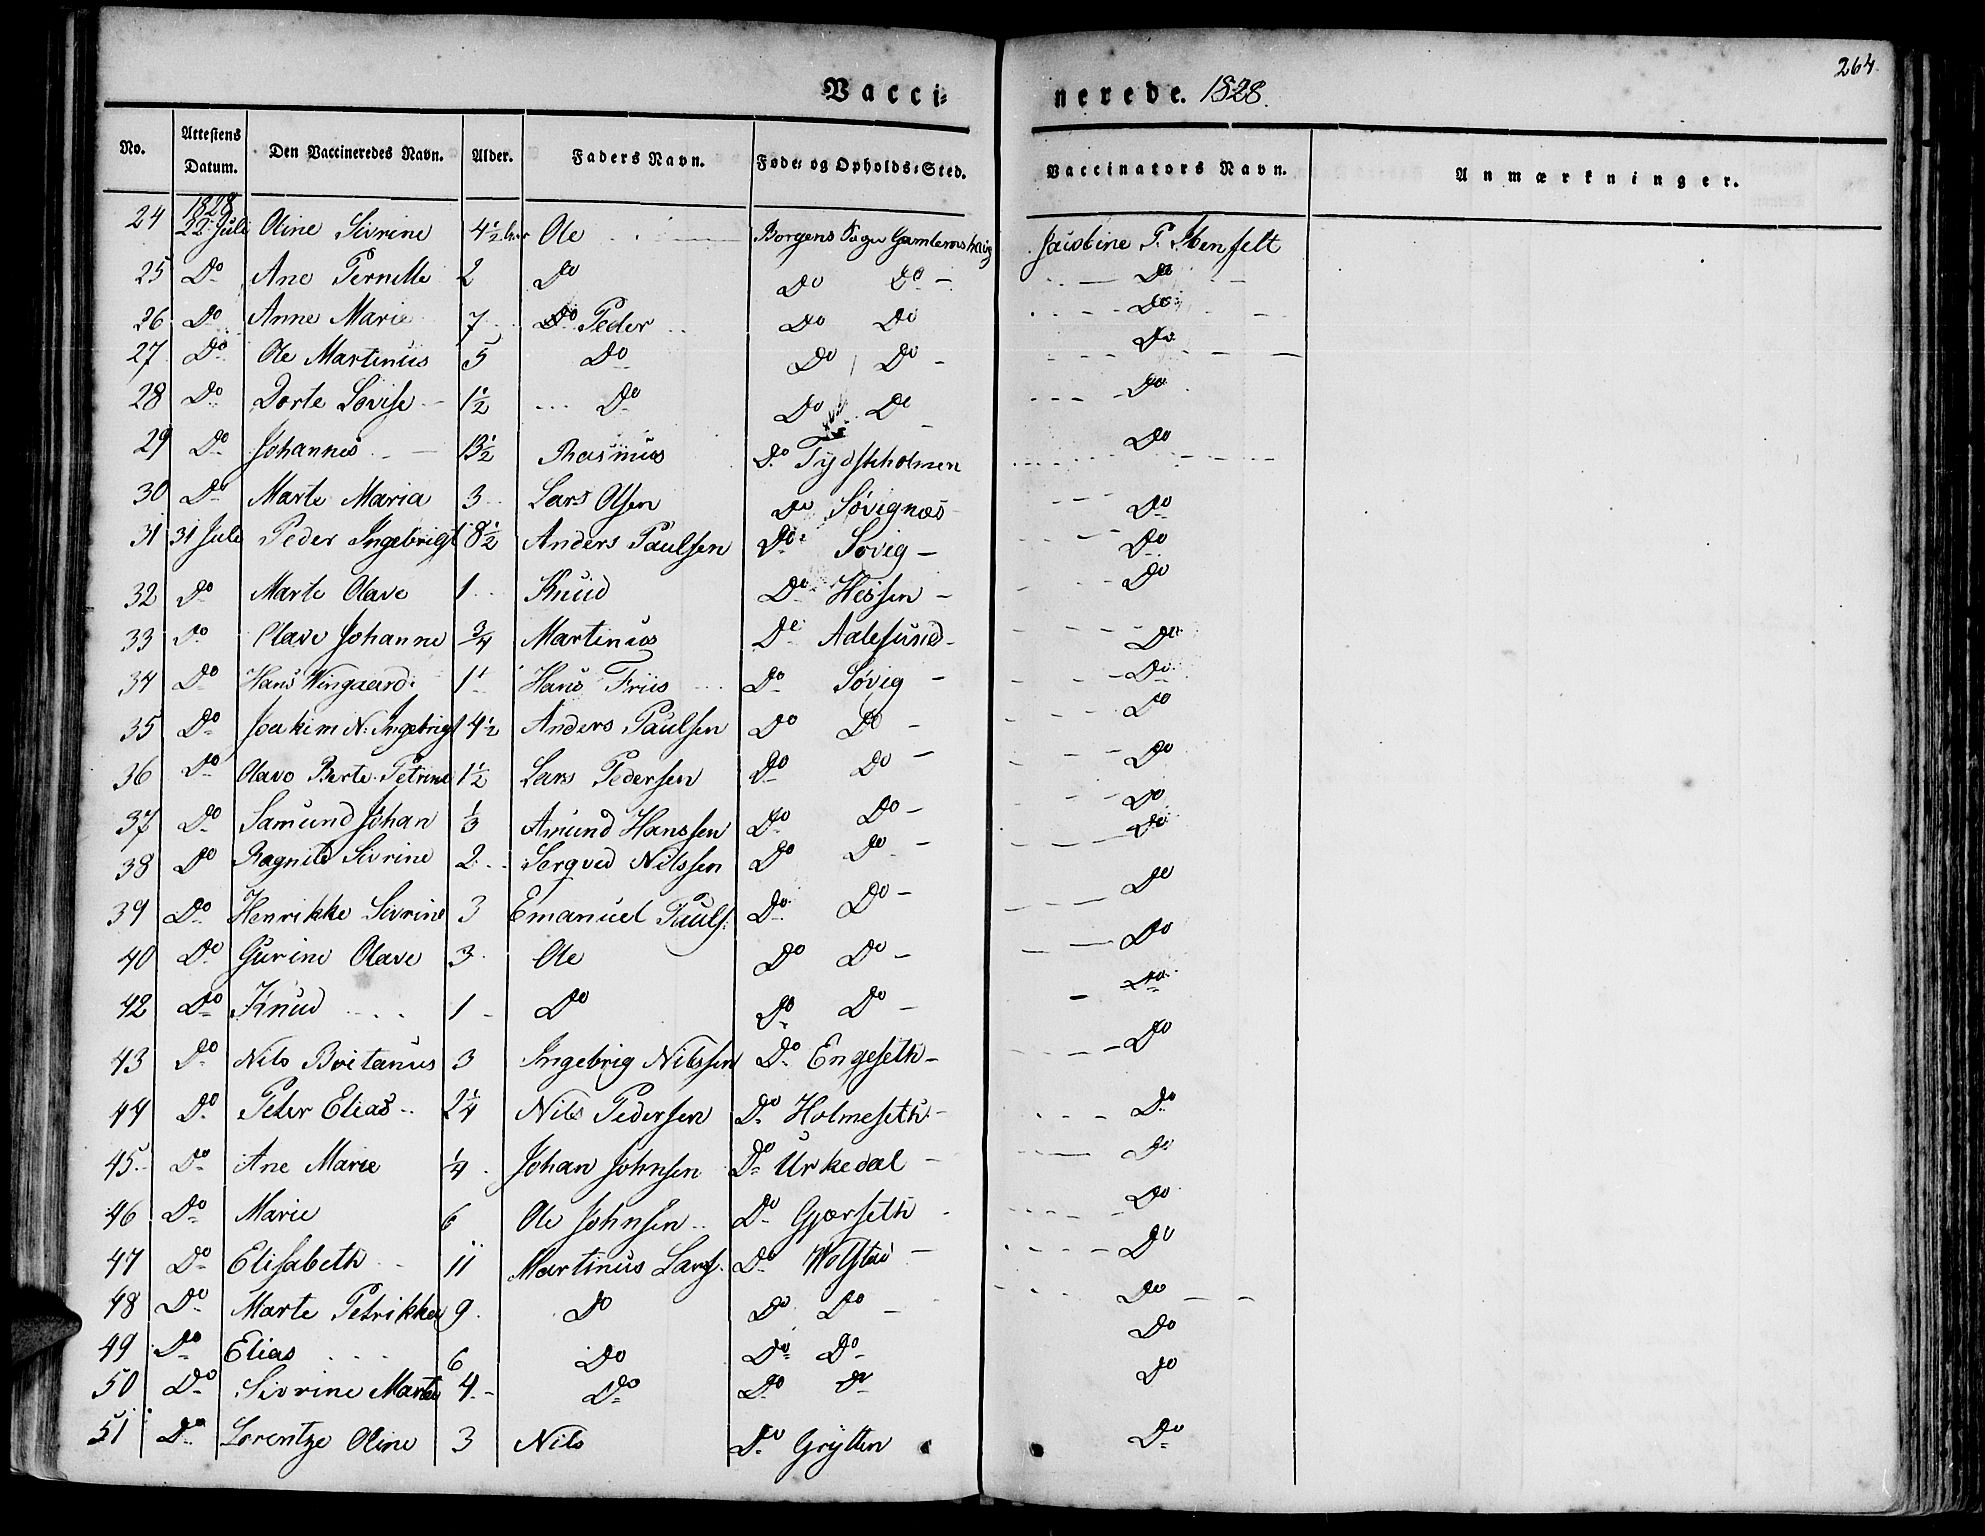 264.
Vacci- nerede. 1828.
No. Attestens Datum. Den Vaccineredes Navn. Alder. Faders Navn. Føde- og Opholds-Sted. Vaccinators Navn. Anmærkninger.
1828
24 22 Juli Oline Sivrine 4½ Ole Borgens Sogn Jacobine P. Stenfelt
25 Do Ane Pernille 2 Do Do Do Do
26 Do Anne Marie 7 Peder Do Do Do
27 Do Ole Martinus 5 Do Do Do Do
28 Do Dorte Lovise 1½ Do Do Do Do
29 Do Johannes 13½ Rasmus Do Tydskholmen Do
30 Do Marte Maria 3 Lars Olsen Do Søvignæs Do
31 31 Juli Peder Ingebrigt 8½ Anders Paulsen Do Søvig Do
32 Do Marte Olave 1 Knud Do Hessen Do
33 Do Olave Johanne ¾ Martinus Do Aalesund Do
34 Do Hans Wingaard 1 Hans Friis Do Søvig Do
35 Do Joakim N: Ingebrigt 4½ Anders Paulsen Do Do Do
36 Do Olavo Berte Petrine 1½ Lars Pedersen Do Do Do
37 Do Samund Johan ⅓ Amund Hanssen Do Do Do
38 Do Ragnite Sivrine 2 Nilssen Do Do Do
39 Do Henrikke Sivrine 3 Emanuel Pauls: Do Do Do
40 Do Gurine Olave 3 Ole Do Do Do
42 Do Knud 1 Do Do Do Do
43 Do Nils Britanus 3 Ingebrig Nilssen Do Engeseth Do
44 Do Peter Elias 2¼ Nils Pedersen Do Holmeseth Do
45 Do Ane Marie ¼ Johan Johnsen Do Urkedal Do
46 Do Marie 6 Ole Johnsen Do Gjærseth Do
47 Do Elisabeth 11 Martinus Lars. Do Wolstad Do
48 Do Marte Petrikke 9 Do Do Do Do
49 Do Elias 6 Do Do Do Do
50 Do Sivrine Marte 4 Do Do Do Do
51 Do Lorentze Oline 3 Nils Do Grytten Do